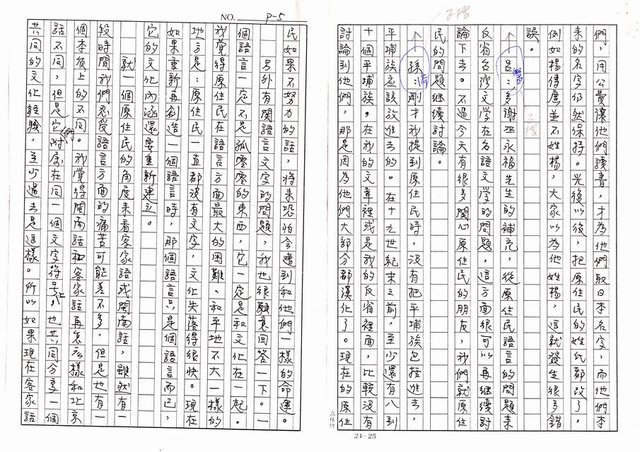 們，用公費讓他們讀書，才為他們取日本名字，而他們本
來的名字仍然保持。光復以後，把原住民的姓氏都改了，
例如楊得度並不姓楊，大家以為他姓楊，這就發生很多錯
誤。
呂：多謝巫永福先生的補充，從原住民語言的問題來
反省台灣文學在各語文學的問題。這方面很可以再繼續討
論下去。不過今天有很多關心原住民的朋友，我們就原住
民的問題繼續討論。
孫：剛才我提到原住民時，沒有把平埔族包括進去，
平埔族應該放進去的。在十九世紀末之前，至少還有八到
十個平埔族。在我的文章裡或是我的反省裡面，比較沒有
討論到他們，那是因為他們大部分都漢化了。現在的原住
24×25
NO. P-5
民如果不努力的話，將來恐怕會遭到和他們一樣的命運。
另外有關語言文字的問題，我也很願意回答一下。一
個語言一定不是孤零的東西，它一定是和文化在一起。
我覺得原住民語言方面最大的困難，和平地不大一樣的
地方是：原住民一直都沒有文字，文化失落得很快。現在
如果重新再創造一個語言時，那個語言只是個語言而已，
它的文化內涵還要重新建立。
就一個原住民的角度來看客家語或閩南語，雖然有一
段時間我們忍受語言方面的痛苦可能差不多，但是也有一
個本質上的不同。我覺得閩南語和客家語再怎麼樣和北京
話不同，但是它們附屬在同一個文字符號上，也共同分享一個
共同的文化經驗，至少過去是這樣。所以如果現在客家話